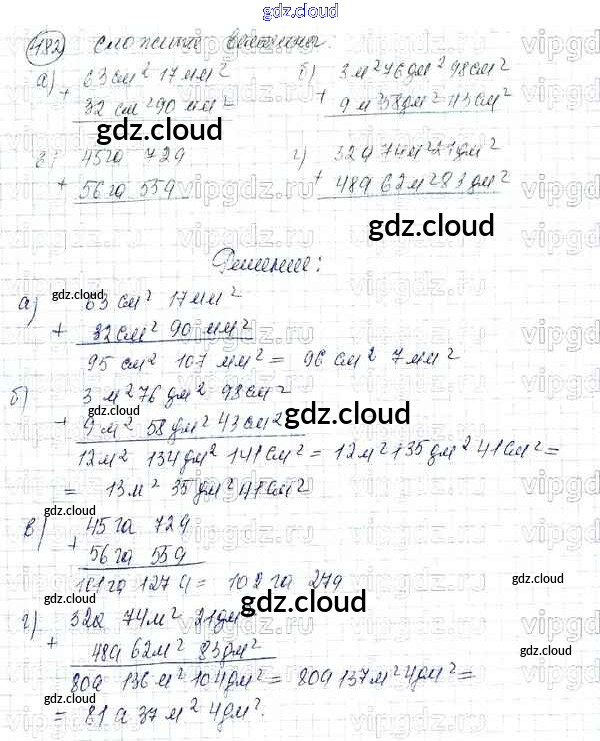 gdz.cloud
182 Сложите величины:
а) 63 см² 17 мм² б) 3 м² 76 дм² 98 см²
+ 32 см² 90 мм² + 9 м² 58 дм² 43 см²
gdz.cloud
gdz.cloud
в) 45 га 72 а г) 32 а 74 м² 21 дм²
+ 56 га 55 а + 48 а 62 м² 83 дм²
gdz.cloud
Решение:
gdz.cloud
а) 63 см² 17 мм²
+ 32 см² 90 мм²
95 см² 107 мм² = 96 см² 7 мм²
б) 3 м² 76 дм² 98 см²
gdz.cloud
gdz.cloud
+ 9 м² 58 дм² 43 см²
12 м² 134 дм² 141 см² = 12 м² 135 дм² 41 см² =
= 13 м² 35 дм² 41 см²
gdz.cloud
в) 45 га 72 а
+ 56 га 55 а
101 га 127 а = 102 га 27 а
gdz.cloud
gdz.cloud
gdz.cloud
г) 32 а 74 м² 21 дм²
+ 48 а 62 м² 83 дм²
80 а 136 м² 104 дм² = 80 а 137 м² 4 дм² =
= 81 а 37 м² 4 дм².
gdz.cloud
gdz.cloud